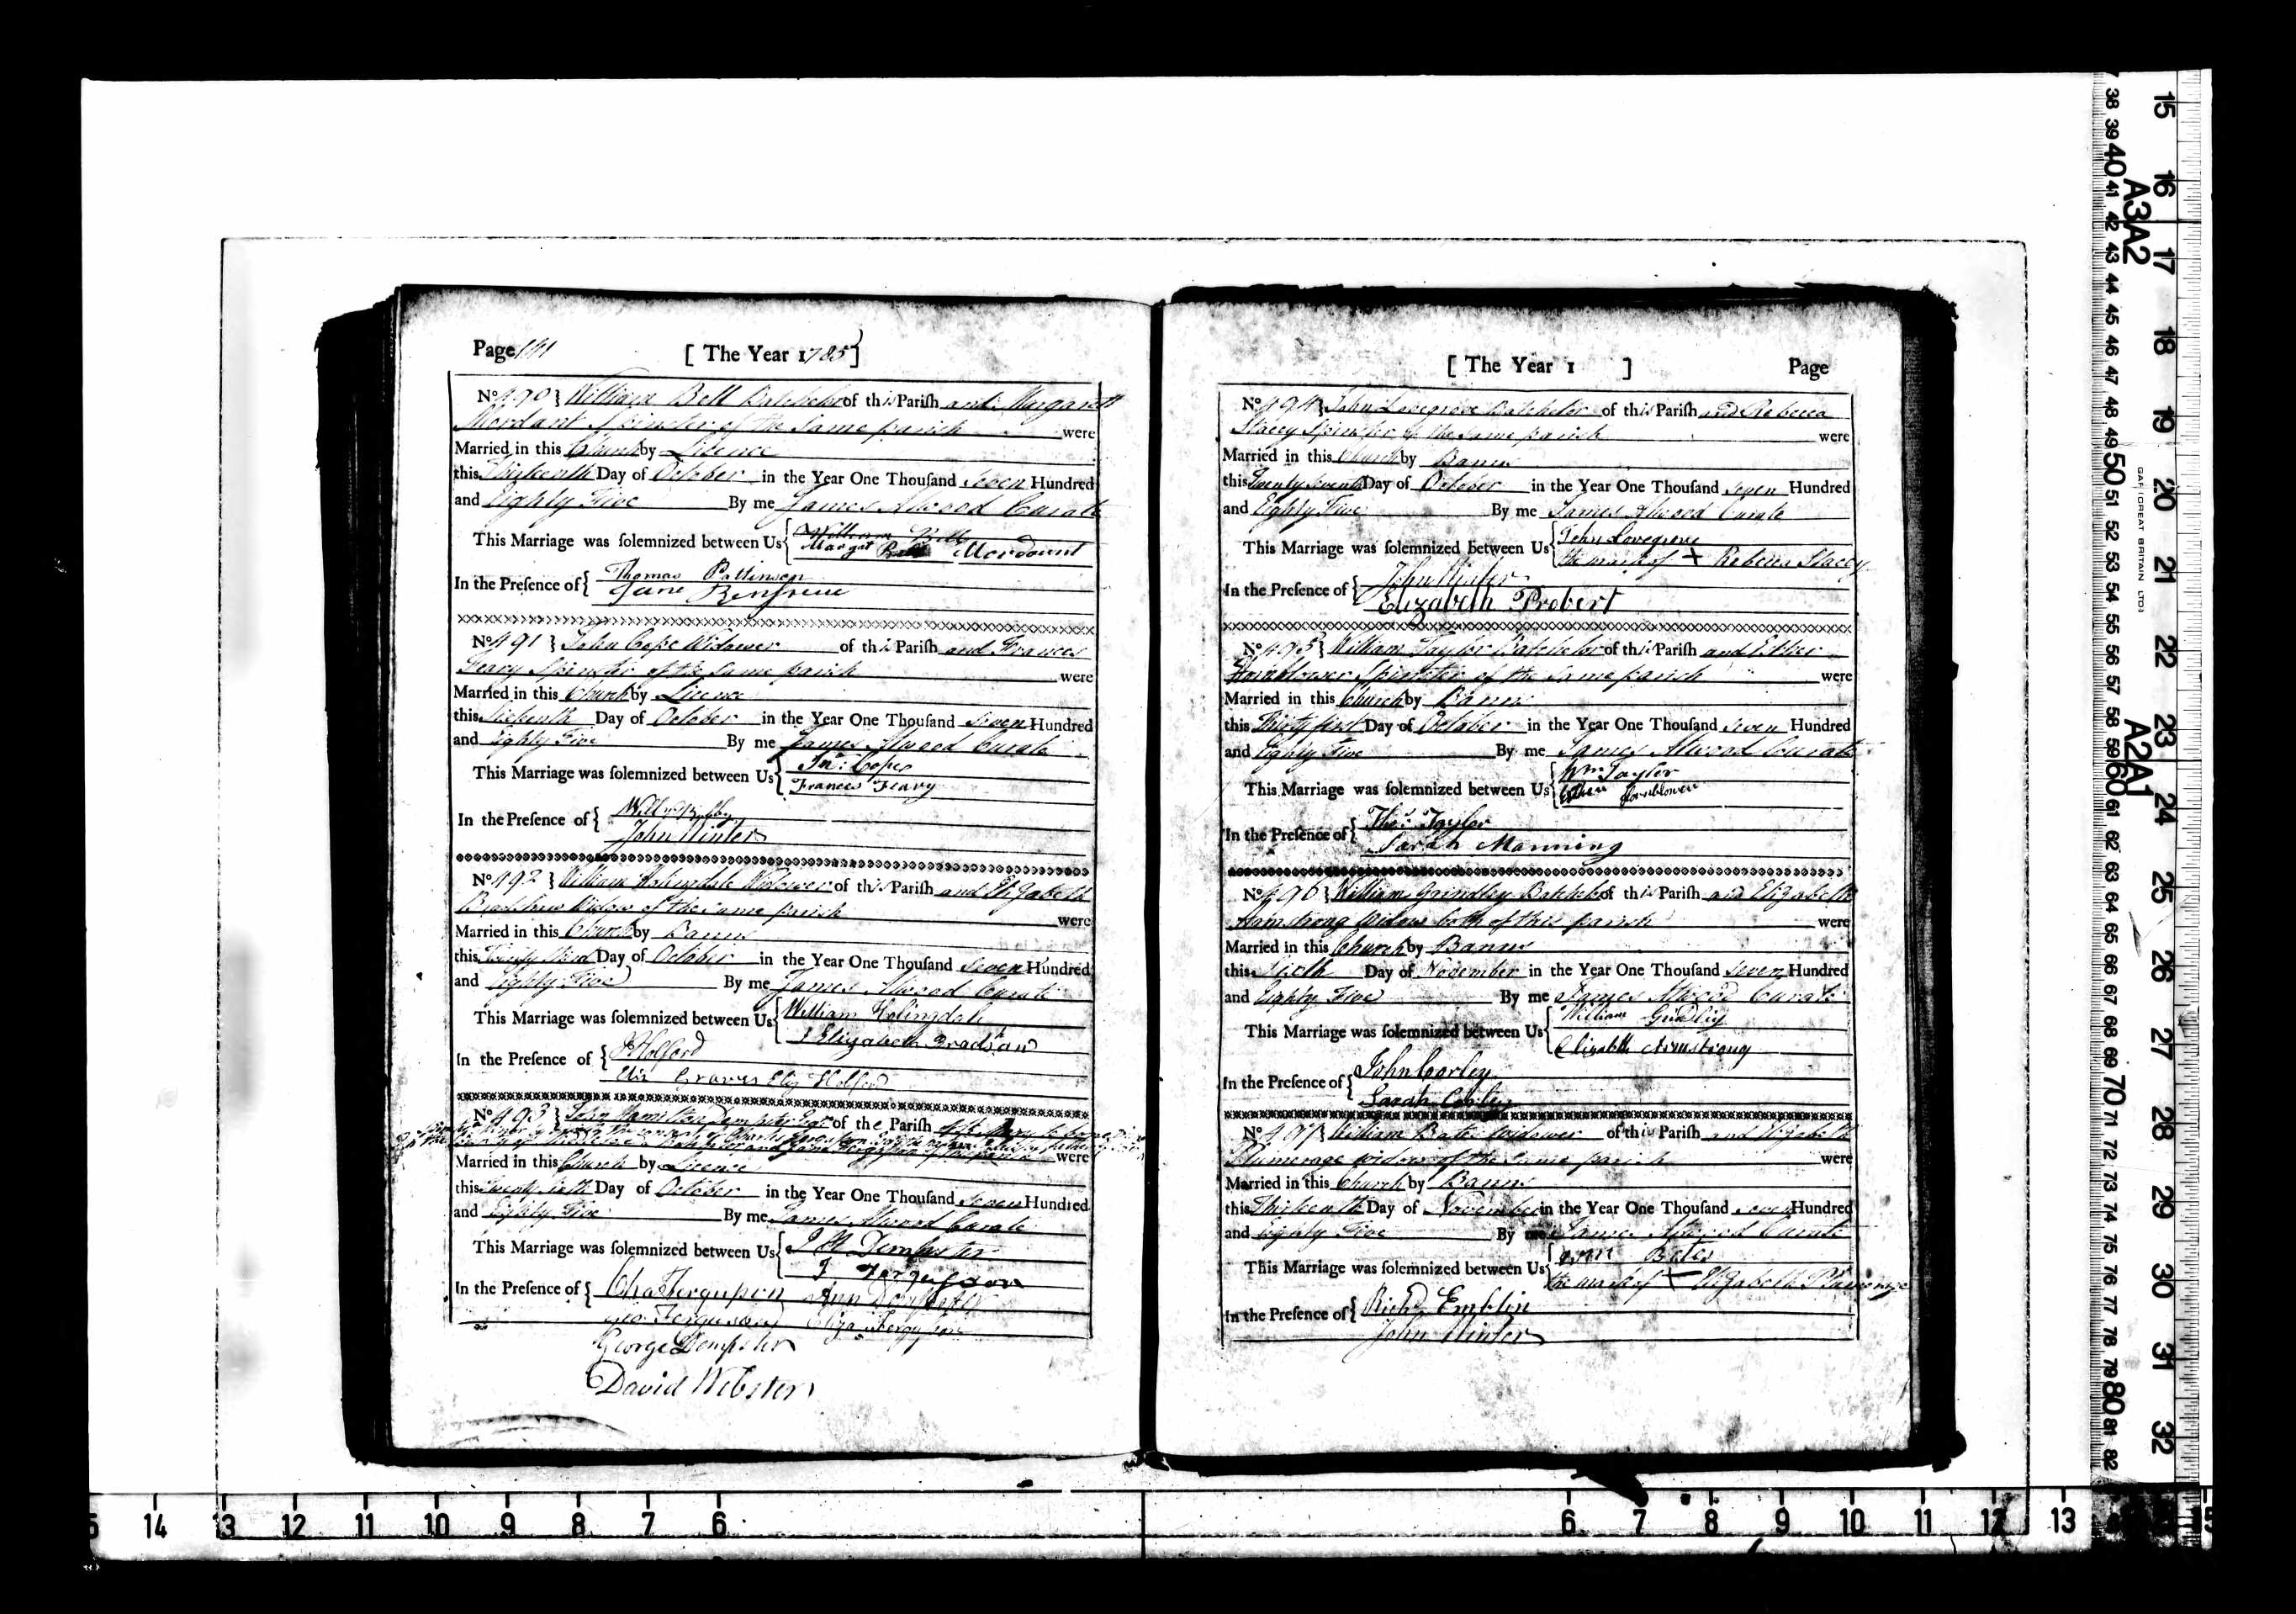 Page 191 [ The Year 1785 ]
No 490 } William Bell Batchelor of this Parish and Margarett
Mordant Spinster of the Same parish were
Married in this Church by Lisence
this Thirteenth Day of October in the Year One Thousand Seven Hundred
and Eighty Five By me James Atwood Curate
This Marriage was solemnized between Us { William Bell
Margat Mordaunt
In the Presence of { Thomas Pattinson
Jane
No 491 } John Cope Widower of this Parish and Frances
Feary Spinster of the Same parish were
Married in this Church by Licence
this Sixteenth Day of October in the Year One Thousand Seven Hundred
and Eighty Five By me James Atwood Curate
This Marriage was solemnized between Us { Jno: Cope
Frances Feary
In the Presence of {
John Winter
No 492 } William Holingdale Widower of this Parish and Elizabeth
Bradshaw Widow of the Same parish were
Married in this Church by Banns
this Twenty third Day of October in the Year One Thousand Seven Hundred
and Eighty Five By me James Atwood Curate
This Marriage was solemnized between Us { William Holingdale
Elizabeth Bradshaw
In the Presence of { Holford
Graves Eliz Holford
No 493 } John Hamilton Dempster Esqr of the Parish
Married in this Church by Licence were
this Twenty Sixth Day of October in the Year One Thousand Seven Hundred
and Eighty Five By me James Atwood Curate
This Marriage was solemnized between Us { J H Dempster
J Fergusson
In the Presence of { Chas Fergusson Ann Dempster
Geo. Fergusson Eliza Fergusson
George Dempster
David Webster
[ The Year 1 ] Page
No 494 } John Lovegrove Batchelor of this Parish and Rebecca
Stacey Spinster of the Same parish were
Married in this Church by Banns
this Twenty Seventh Day of October in the Year One Thousand Seven Hundred
and Eighty Five By me James Atwood Curate
This Marriage was solemnized between Us { John Lovegrove
the mark of + Rebecca Stacey
In the Presence of { John Winter
Elizabeth Probert
No 495 } William Taylor Batchelor of this Parish and Esther
Hornblower Spinster of the Same parish were
Married in this Church by Banns
this Thirty first Day of October in the Year One Thousand Seven Hundred
and Eighty Five By me James Atwood Curate
This Marriage was solemnized between Us { Wm Taylor
Esther Hornblower
In the Presence of { Thos Taylor
Sarah Manning
No 496 } William Grindley Batchelor of this Parish and Elizabeth
Armstrong Widow both of this parish were
Married in this Church by Banns
this Sixth Day of November in the Year One Thousand Seven Hundred
and Eighty Five By me James Atwood Curate
This Marriage was solemnized between Us { William Grindley
Elizabeth Armstrong
In the Presence of { John Corley
Sarah Corley
No 497 } William Bates Widower of this Parish and Elizabeth
Plumerage Widow of the Same parish were
Married in this Church by Banns
this Thirteenth Day of November in the Year One Thousand Seven Hundred
and Eighty Five By me James Atwood Curate
This Marriage was solemnized between Us { Wm Bates
the mark of Elizabeth Plumerage
In the Presence of { Richd Emblin
John Winter